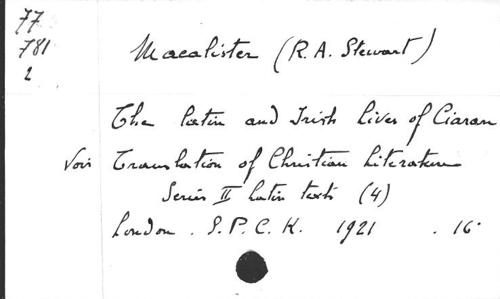 77
781
2
Macalister (R.A. Stewart)
The Latin and Irish Lives of Ciaran
Voir Translation of Christian Literature
Series II Latin texts (4)
London. S.P.C.K. 1921 . 16°